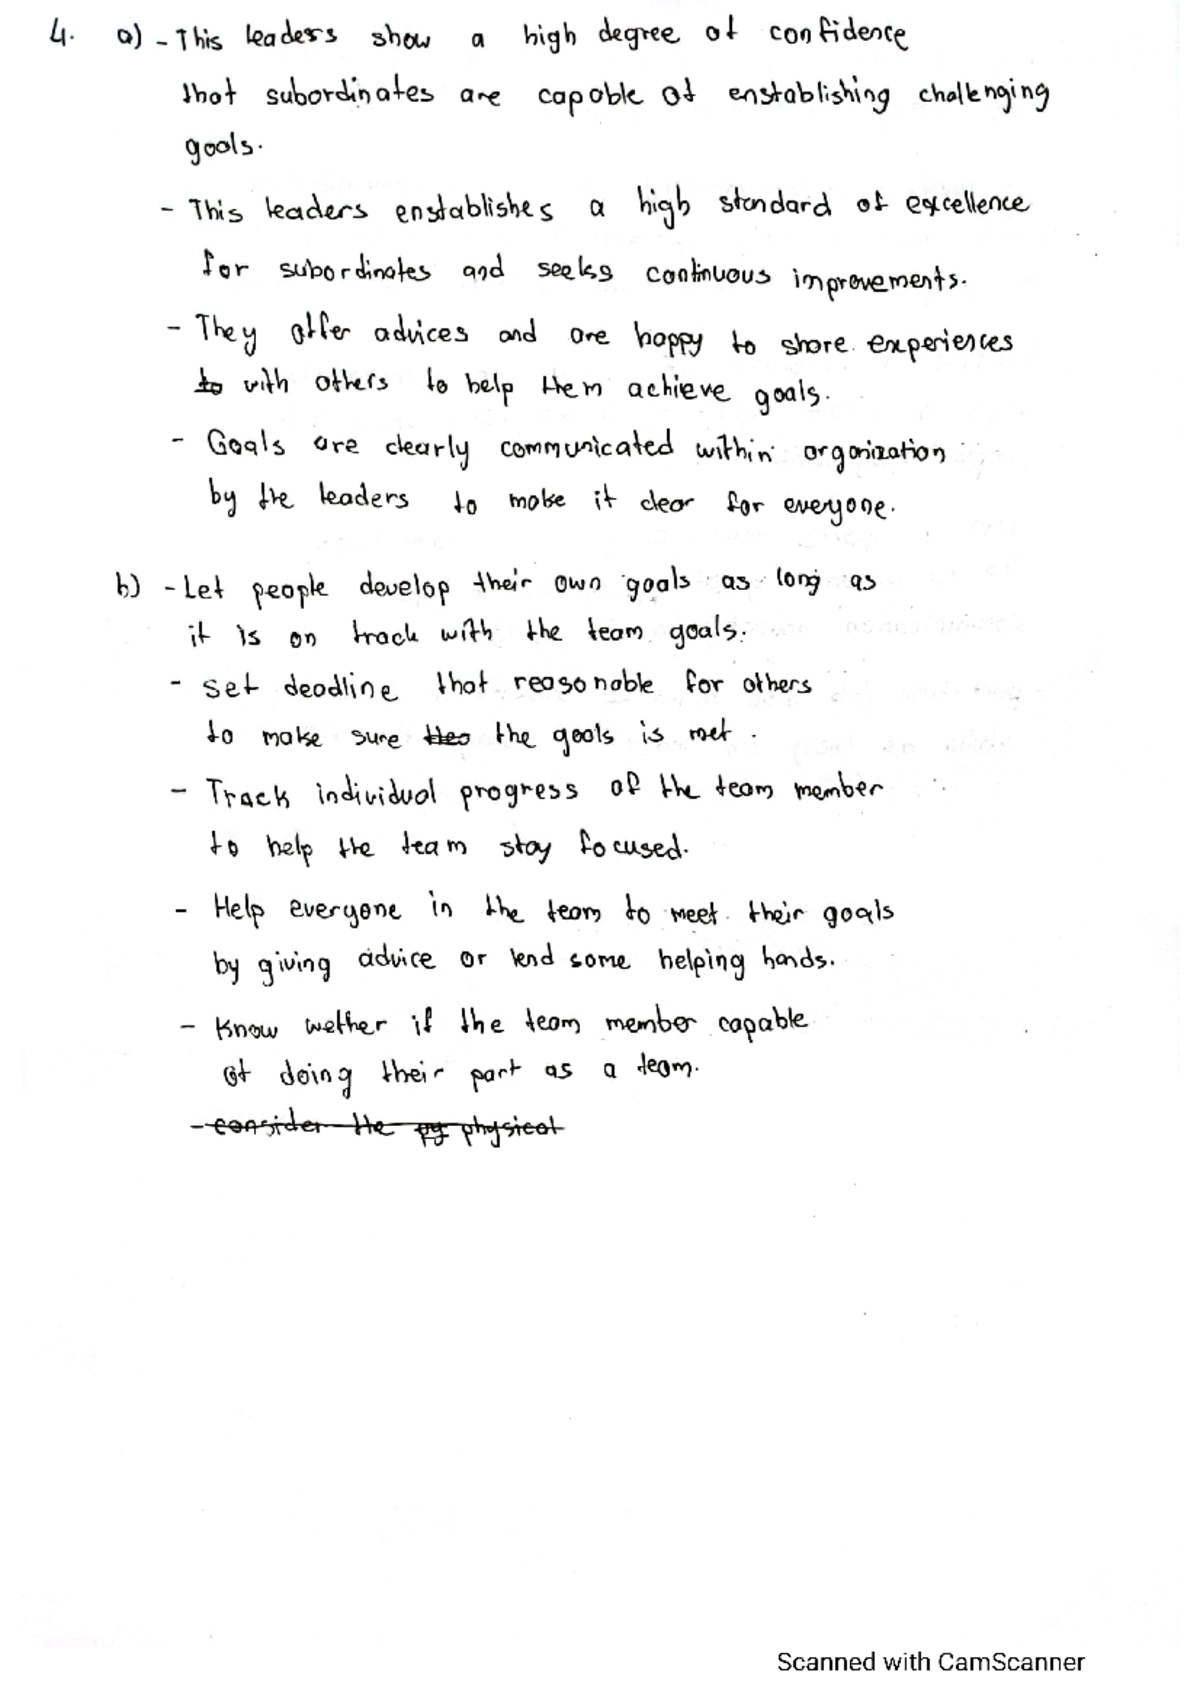 4. a) - This leaders show a high degree of confidence
that subordinates are capable of enstablishing challenging
goals.
- This leaders enstablishes a high standard of excellence
for subordinates and seekss continuous improvements.
- They offer advices and are happy to share experiences
to with others to help them achieve goals.
- Goals are clearly communicated within organization
by the leaders to make it clear for everyone.
b) - Let people develop their own goals as long as
it is on track with the team goals.
- set deadline that reasonable for others
to make sure the goals is met.
- Track individual progress of the team member
to help the team stay focused.
- Help everyone in the team to meet their goals
by giving advice or lend some helping hands.
- Know wether if the team member capable
of doing their part as a team.
- consider the py physical
Scanned with CamScanner